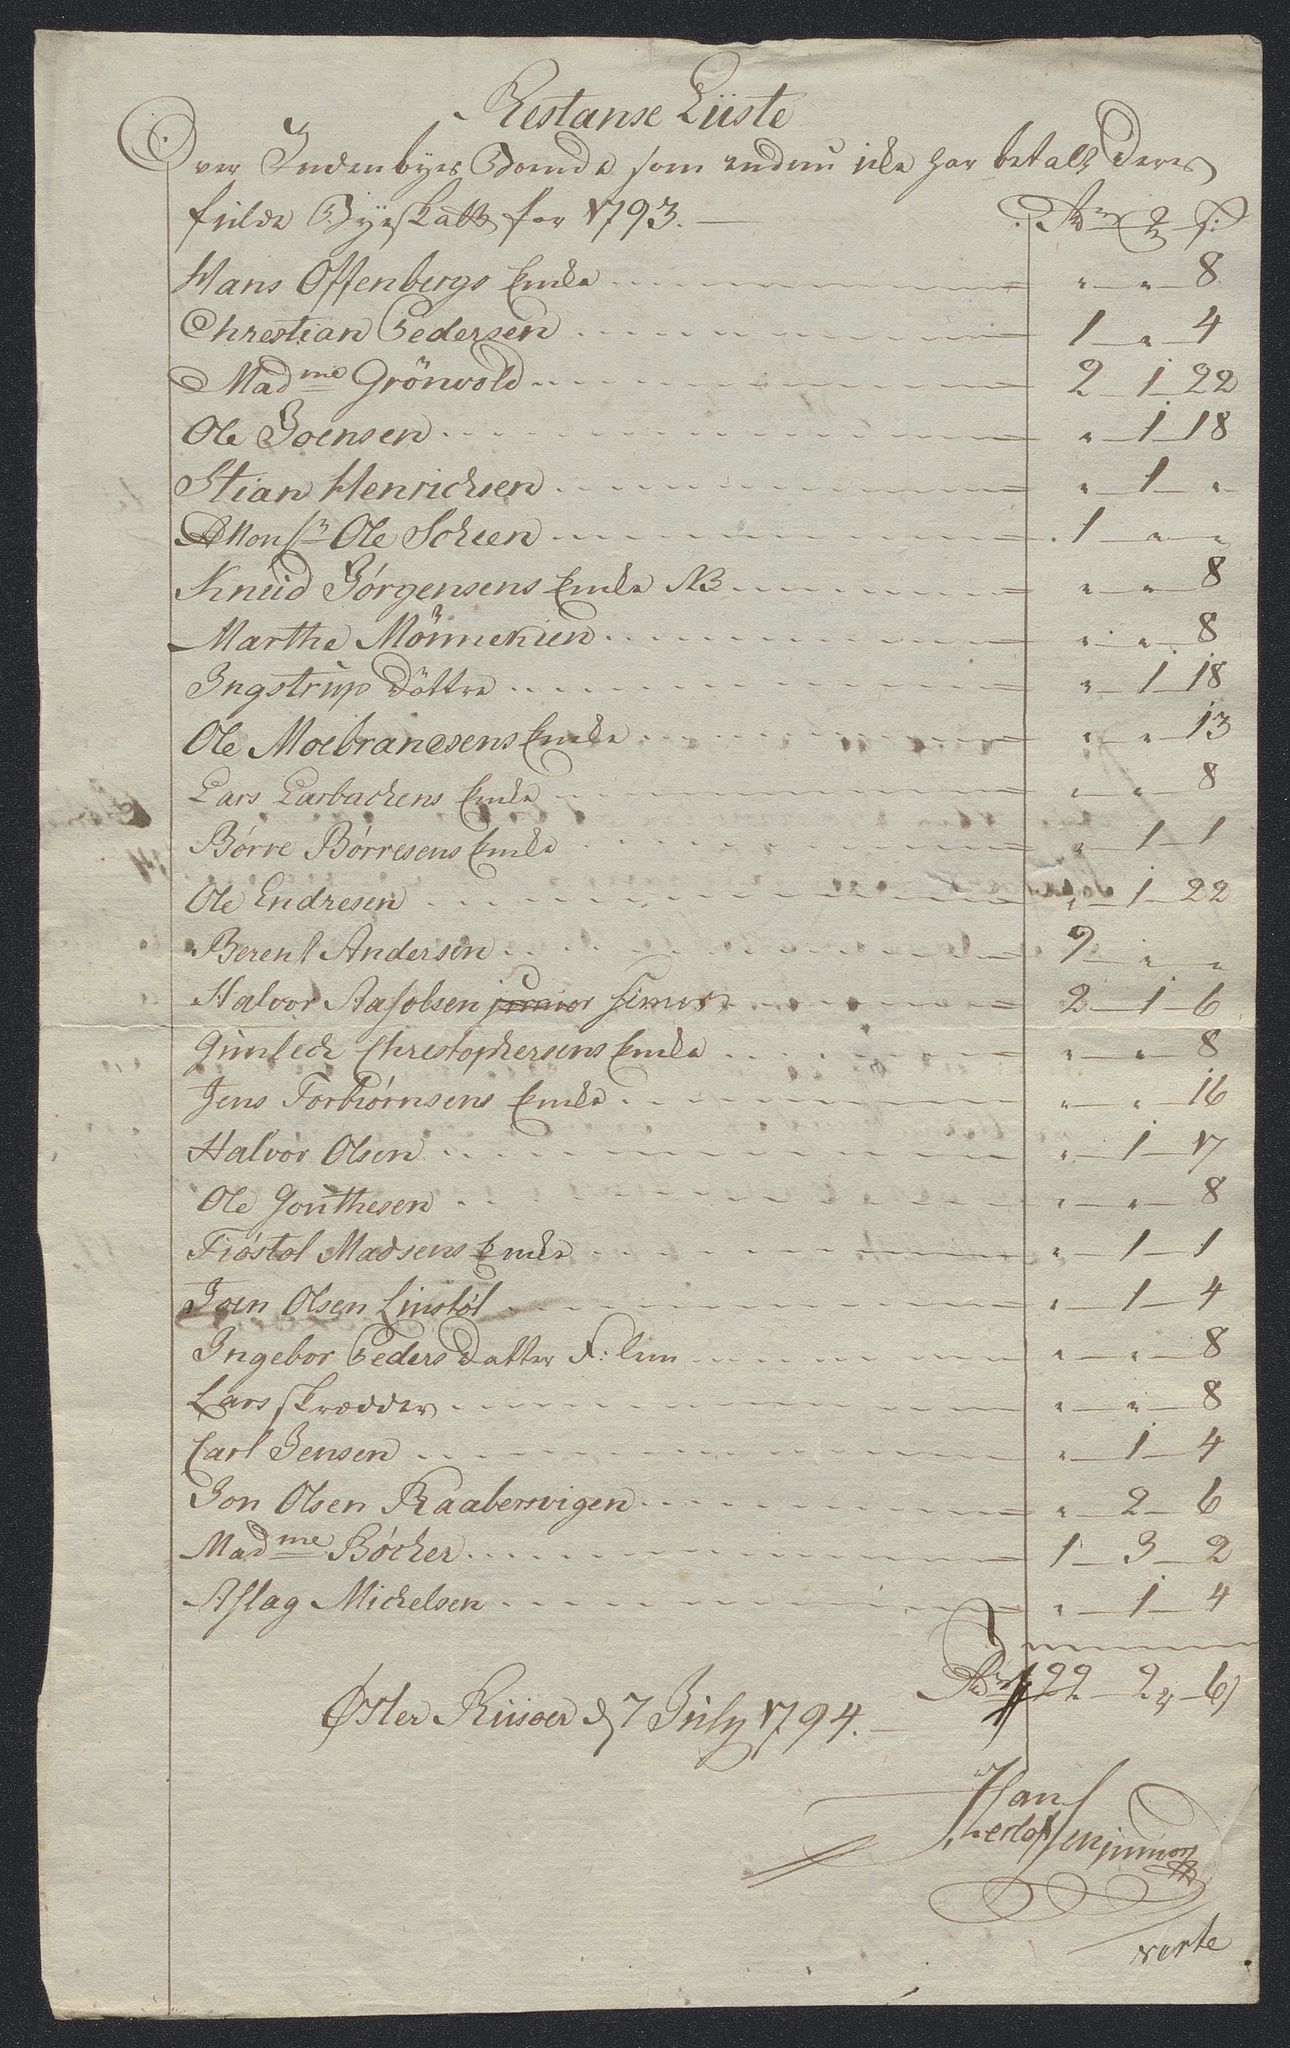 Restanse Liiste
Over Indenbyes Boende som endnu icke har betalt deres
fulde Byeskatt for 1793. — Rdr ℳ s:
Hans Offenbergs Encke " " 8
Chrestian Pedersen 1 " 4
Madme Grönvold 2 1 22
Ole Joensen " 1 18
Stian Henrichsen " 1 "
Monsr Ole Scheen 1 " "
Knud Jörgensens Encke NB " " 8
Marthe Mönnekien " " 8
Ingstrup Döttre " 1 18
Ole Moebrandsens Encke " " 13
Lars Larbachens Encke " " 8
Börre Börresens Encke " 1 1
Ole Endresen " 1 22
Berent Andersen 9 " "
Halvor Aasolsen junior senior 2 1 6
Gunlech Chrestophersens Encke " " 8
Jens Torbiörnsens Encke " " 16
Halvor Olsen " 1 17
Ole Gonthesen " " 8
Tiöstol Madsens Encke " 1 1
Joen Olsen Linstöl " 1 4
Ingebor Peders datter " " 8
Lars skrædder " " 8
Carl Jensen " 1 4
Jon Olsen Raabersvigen " 2 6
Madme Böcker 1 3 2
Aslag Michelsen " 1 4
Rdr 22 2 6
Öster Riisöer d 7 July 1794.
Hans
Herlofsen junior
verte